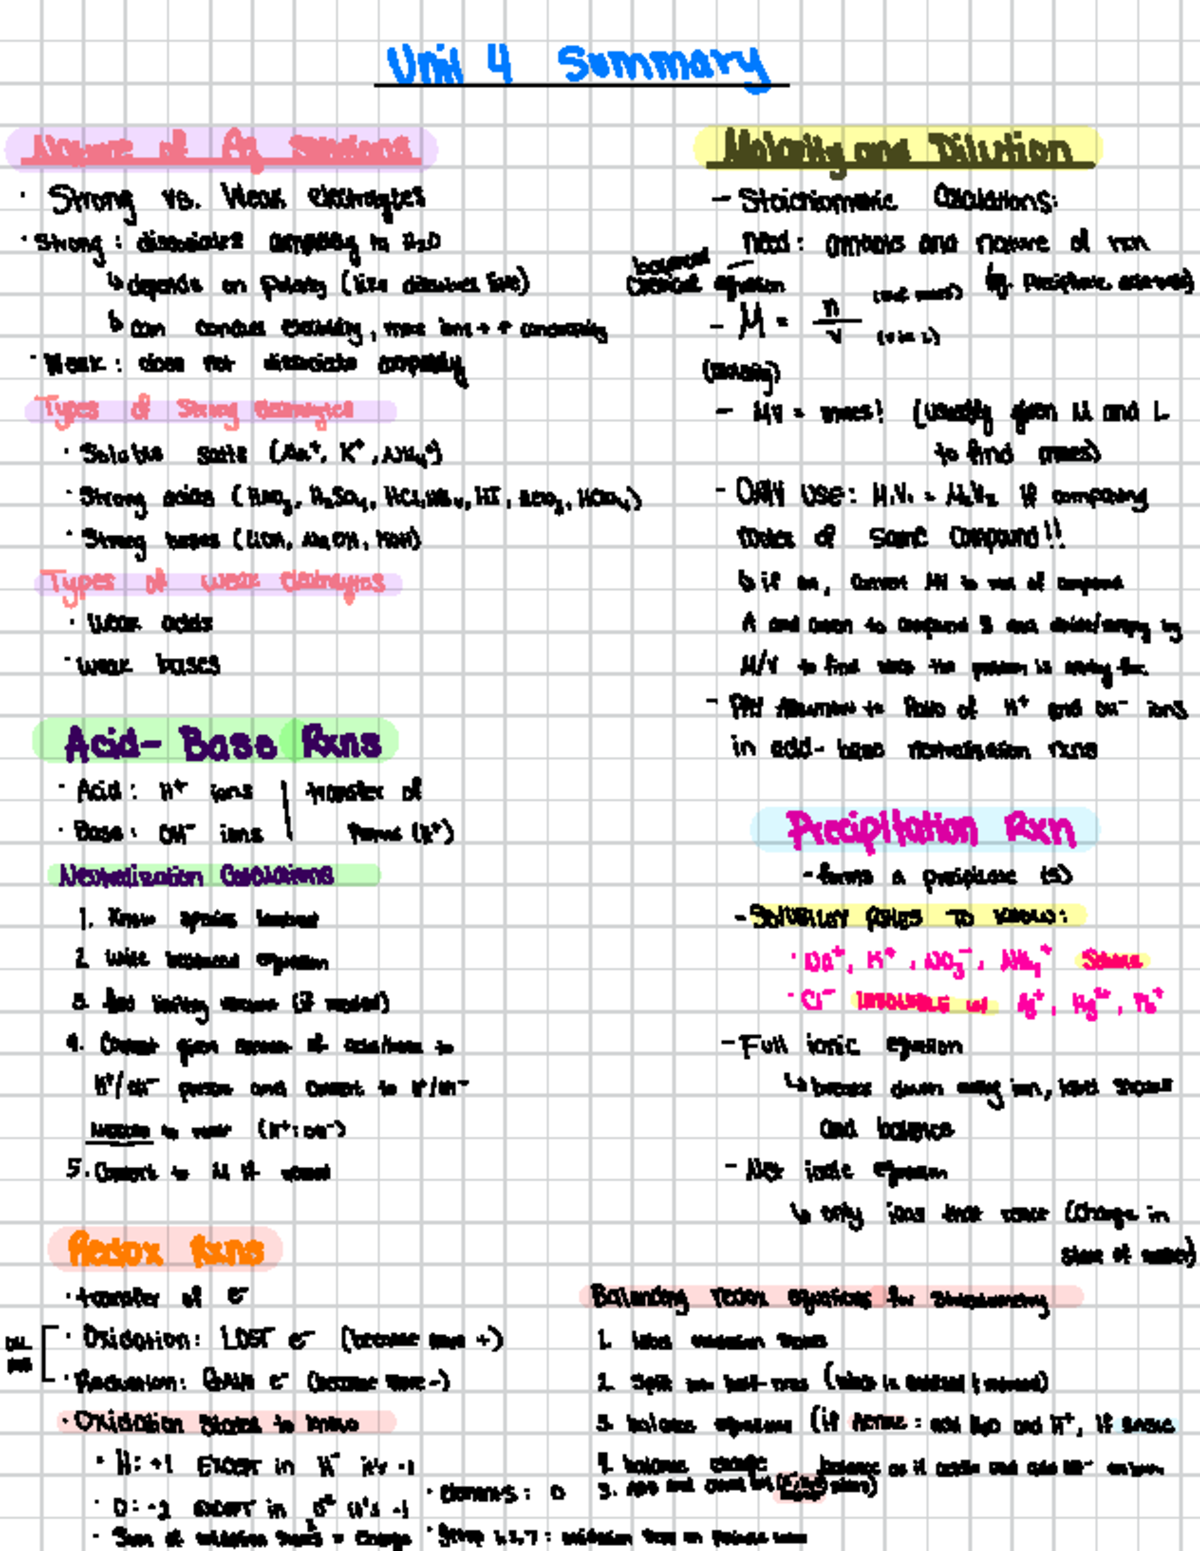 Unit 4 Summary
Nature of Aq Solutions
· Strong vs. Weak electrolytes
· Strong: dissociates completely in H₂O
↳ depends on Polarity (like dissolves like)
↳ can conduct electricity, more ions → ↑ conductivity
· Weak: does not dissociate completely
Types of Strong electrolytes
· Soluble salts (Na⁺, K⁺, NH₄⁺)
· Strong acids (HNO₃, H₂SO₄, HCl, HBr, HI, HClO₃, HClO₄)
· Strong bases (LiOH, NaOH, KOH)
Types of weak electrolytes
· Weak acids
· weak bases
Acid-Base Rxns
· Acid: H⁺ ions | transfer of
· Base: OH⁻ ions | (H⁺)
Neutralization Calculations
1. Know species involved
2. Write balanced equation
3. limiting (if needed)
4. Convert given of acid/base to
H⁺/OH⁻ and convert to H⁺/OH⁻
(H⁺:OH⁻)
5. Convert to M if
Redox Rxns
· transfer of e⁻
· Oxidation: LOST e⁻ (become more +)
· Reduction: GAIN e⁻ (become more -)
· Oxidation States to know
· H: +1 EXCEPT in H⁻ it's -1
· O: -2 EXCEPT in it's -1
· Sum of oxidation states = Charge
· Elements: 0
· Group 1,2,7: oxidation
Molarity and Dilution
- Stoichiometric Calculations:
need: amounts and nature of rxn
balanced
chemical equation
(eg. Precipitate, acid-base)
- M = n/V (in L)
(Molarity)
- MV = moles! (usually given M and L
to find moles)
- ONLY USE: M₁V₁ = M₂V₂ if comparing
moles of same compound!!
↳ if no, convert MV to mol of compound
A and then to compound B and divide/multiply by
M/V to find what the problem is asking for
- PAY Attention to Ratio of H⁺ and OH⁻ ions
in acid-base neutralization rxns
Precipitation Rxn
- forms a precipitate (s)
- SOLUBILITY RULES TO KNOW:
· Na⁺, K⁺, NO₃⁻, NH₄⁺ Soluble
· Cl⁻ INSOLUBLE w/ Ag⁺, Hg²⁺, Pb⁺
- Full ionic equation
↳ breaks down every ion, label states
and balance
- Net ionic equation
↳ only ions that react (change in
state of matter)
Balancing redox equations for stoichiometry
1. label oxidation states
2. Split into half-rxns (what is oxidized & reduced)
3. balance equations (if ACIDIC: add H₂O and H⁺, if BASIC:
balance as if acidic and add OH⁻
4. balance charge
5. Add and cancel out